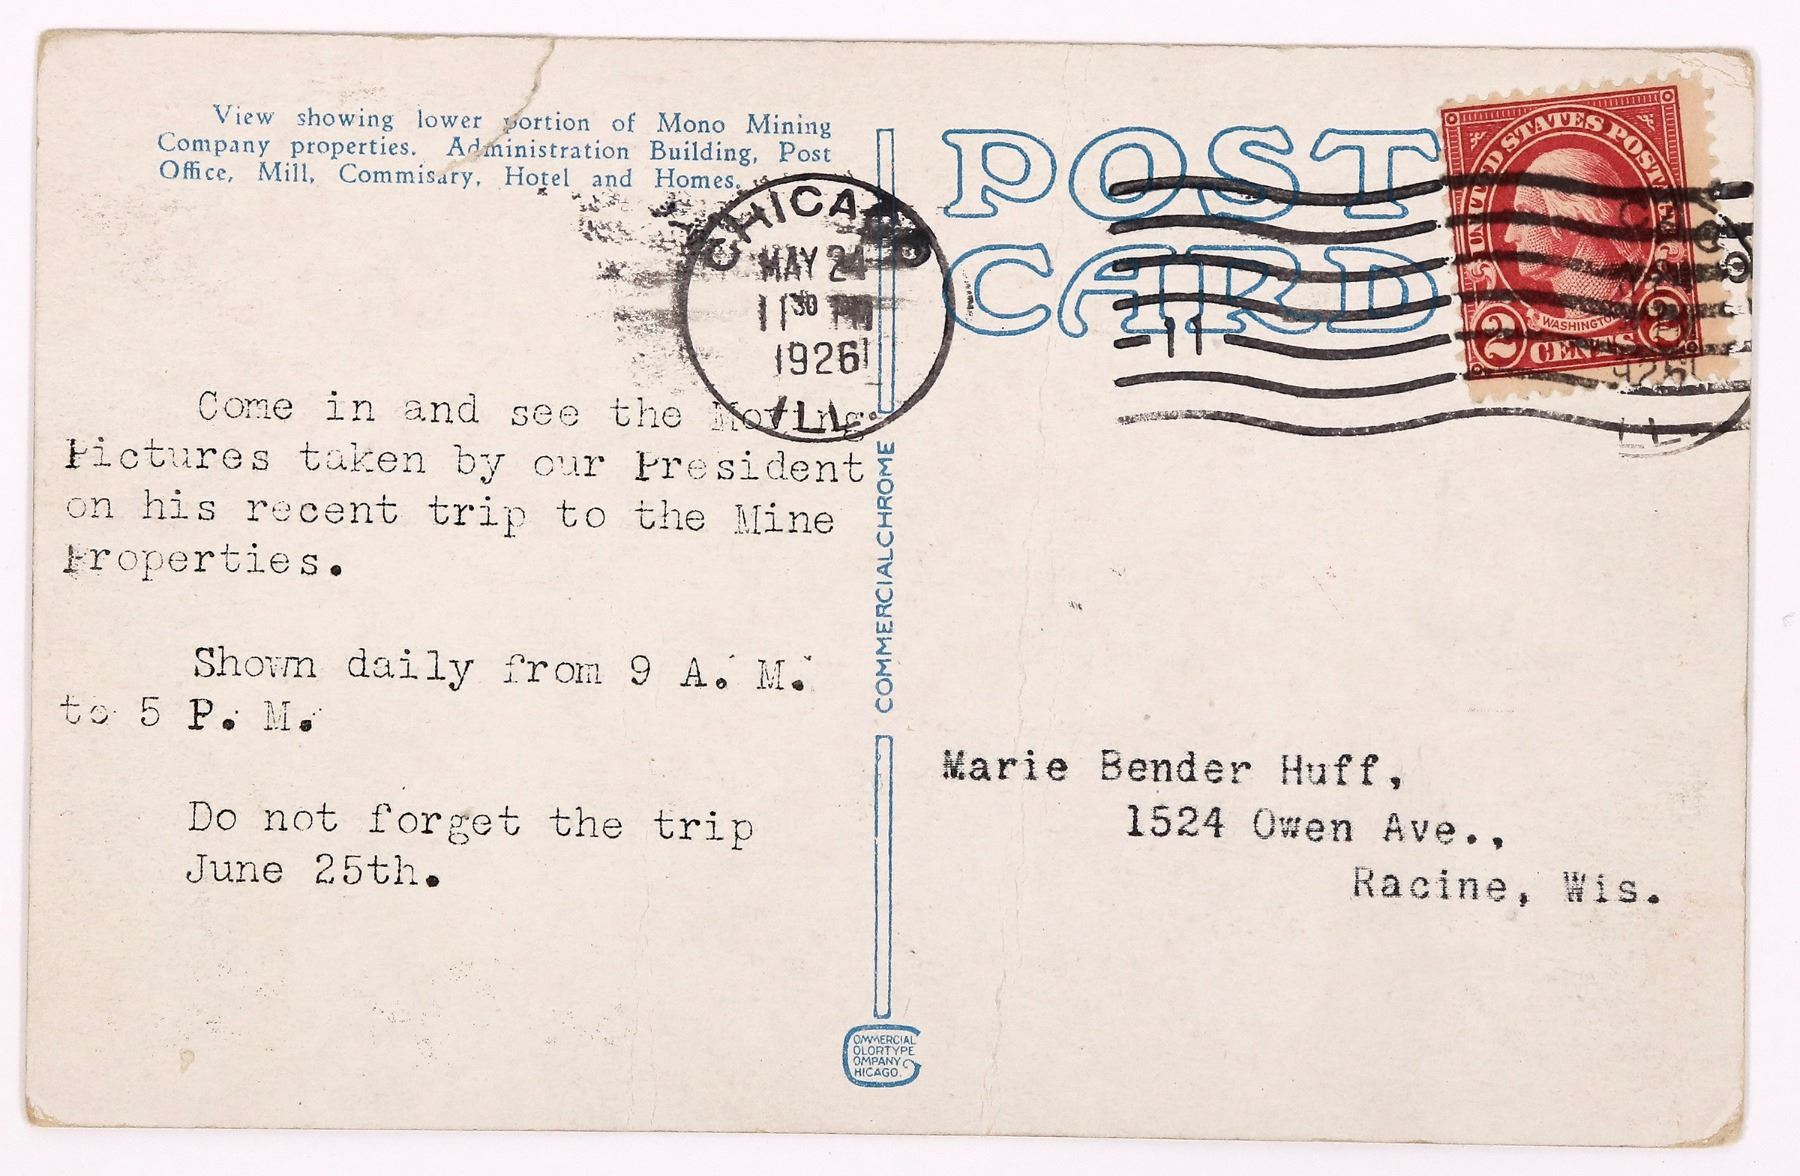 View showing lower portion of Mono Mining
Company properties. Administration Building, Post
Office, Mill, Commisary, Hotel and Homes.
CHICAGO
MAY 24
11 30 PM
1926
ILL.
Come in and see the Moving
Pictures taken by our President
on his recent trip to the Mine
Properties.
Shown daily from 9 A. M.
to 5 P. M.
Do not forget the trip
June 25th.
COMMERCIALCHROME
COMMERCIAL
COLORTYPE
COMPANY
CHICAGO.
POST
CARD
11
UNITED STATES POSTAGE
WASHINGTON
2 CENTS 2
Marie Bender Huff,
1524 Owen Ave.,
Racine, Wis.